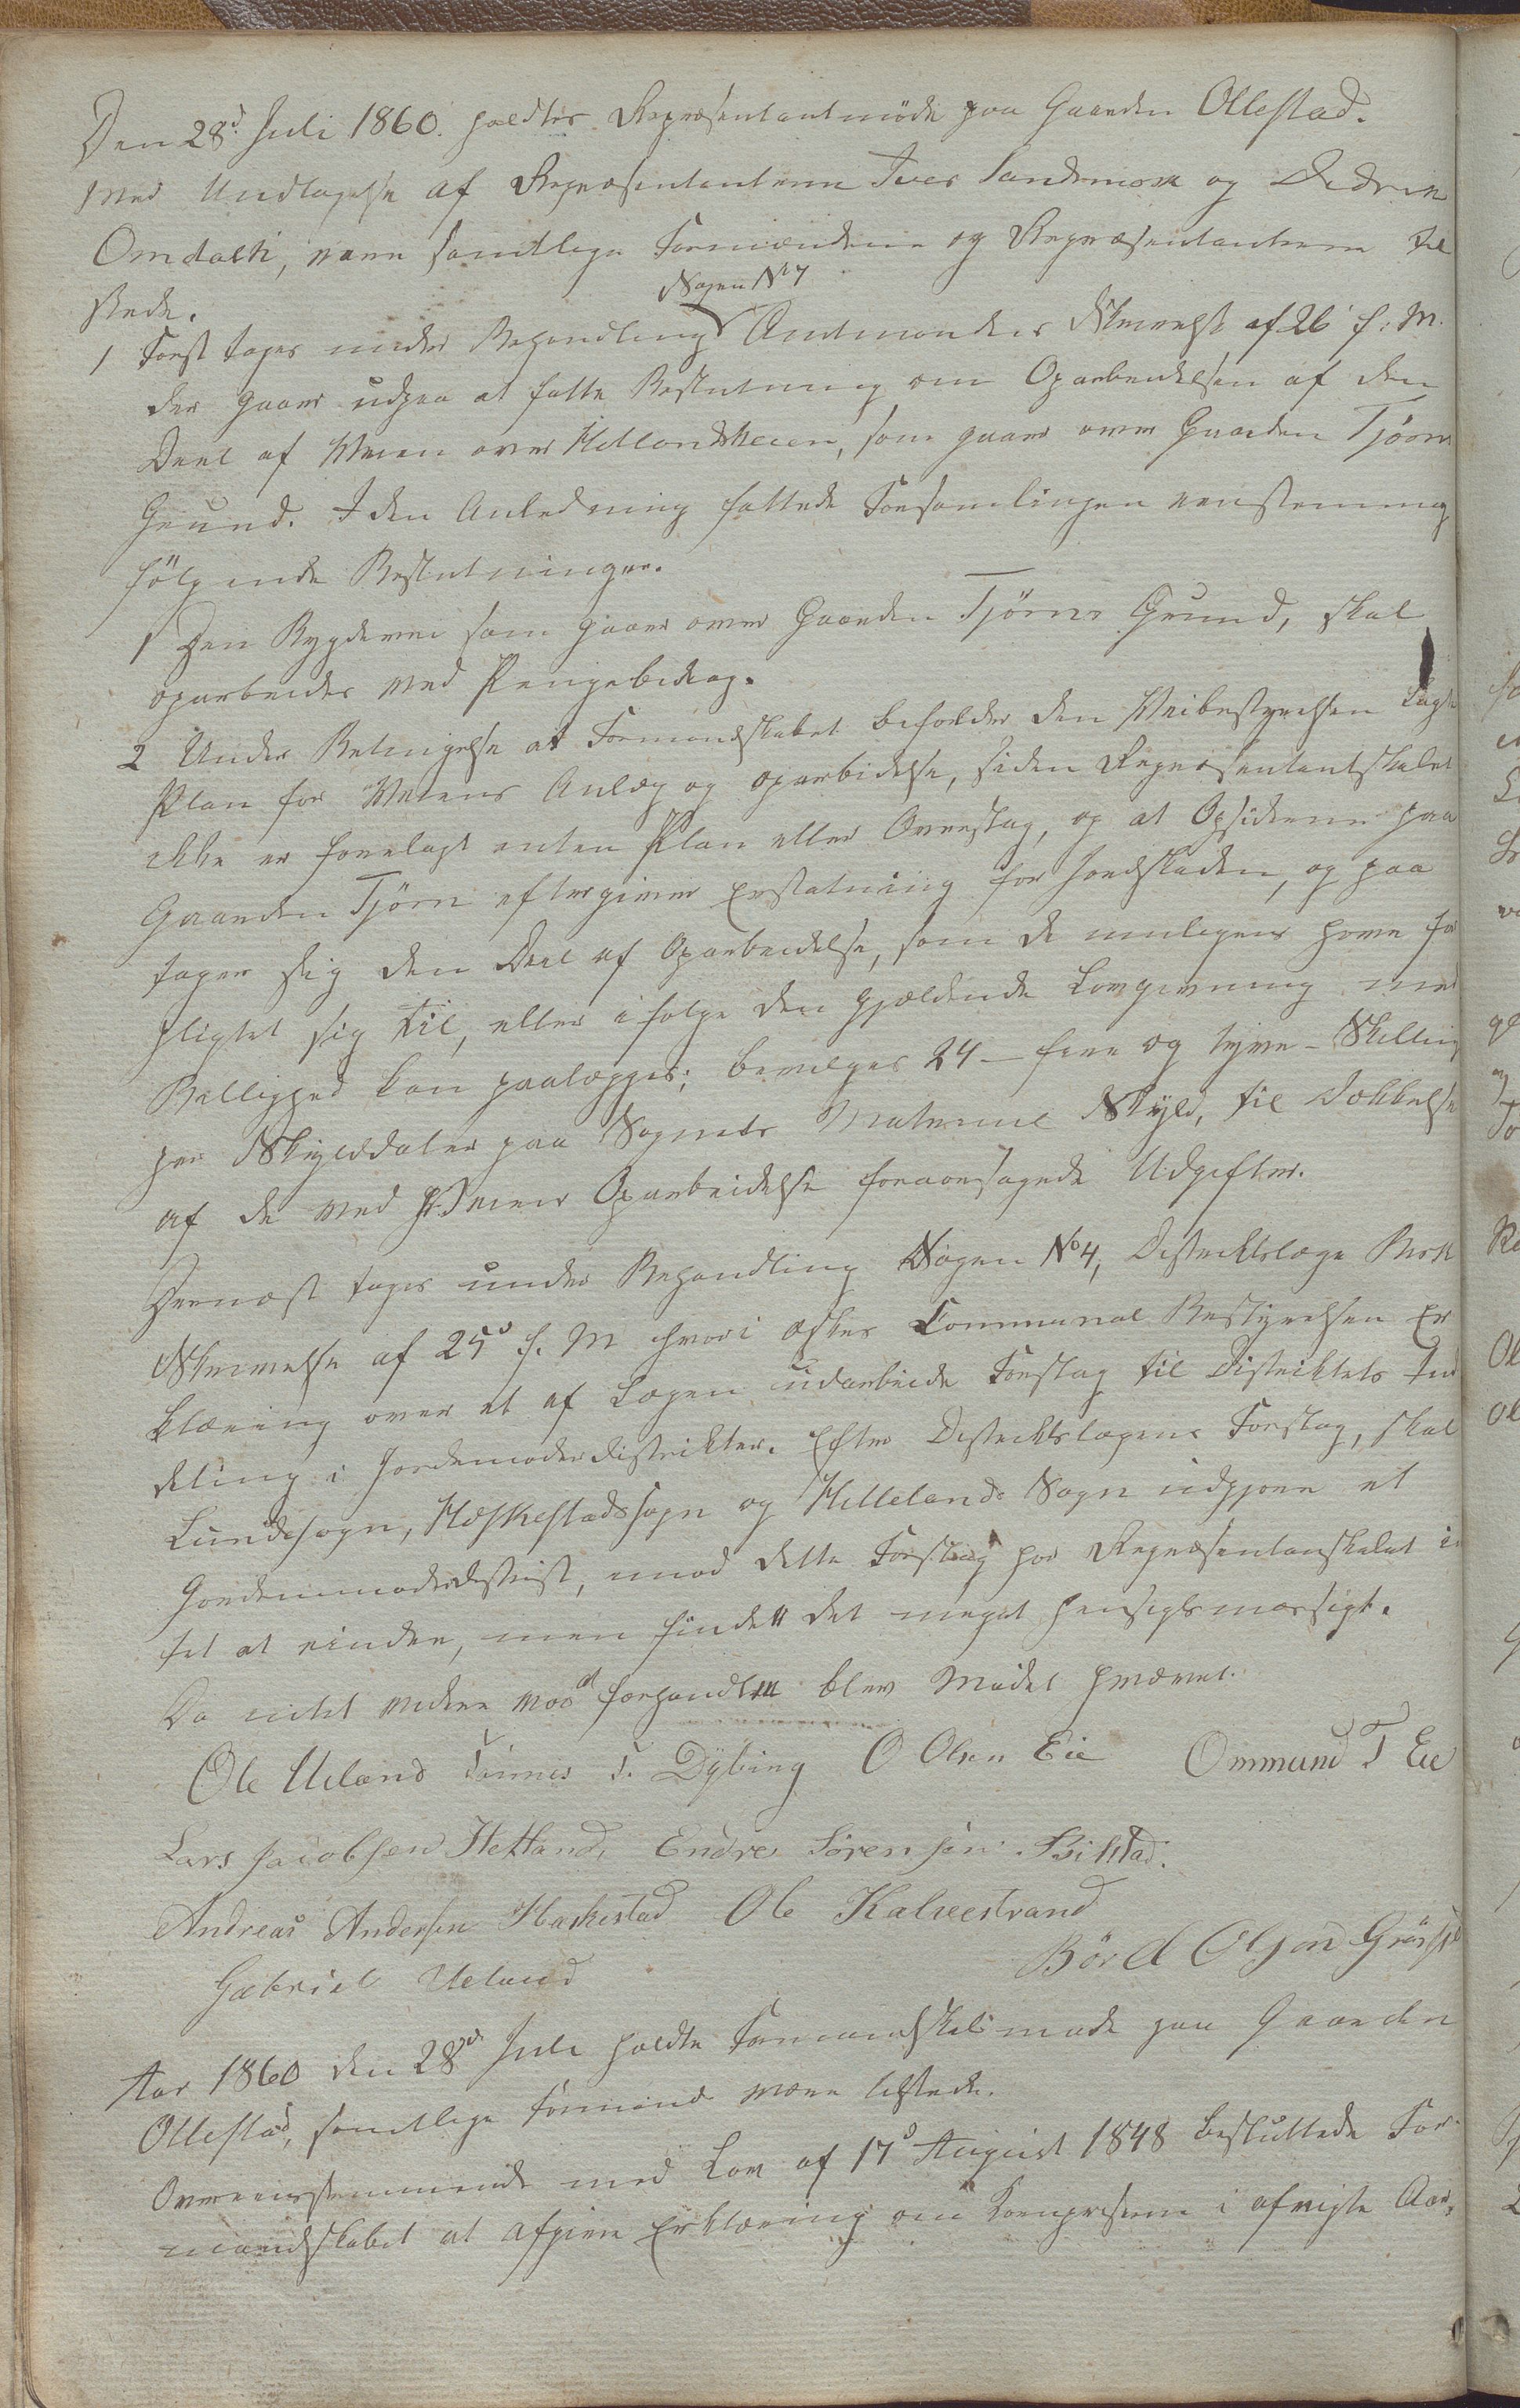 Den 28d Juli 1860. holdtes Repræsentantmöde paa Gaarden Ollestad.
Med Undtagelse af Repræsentanterne Iver Sandsmark og Didrik
Omdahl, vare samtlige Formændene og Repræsentanterne til
stede.
Sagen No 7
1 Först toges under Behandling Amtmandens Skrivelse af 26 f: M.
der gaaer udpaa at fatte Beslutning om Oparbeidelsen af den
Deel af Veien over Hellandsheien, som gaaer over Gaarden Tjörns
Grund. I den Anledning fattede Forsamlingen eenstemmig
fölgende Beslutninger.
1 Den Bygdevei som gaaer over Gaarden Tjörns Grund, skal
oparbeides ved Pengebidrag.
2 Under Betingelse at Formandskabet beholder den Veibestyrelsen lagte
Plan for Veiens Anlæg og oparbidelse, siden Repræsentantskabet
ikke er forelagt enten Plan eller Overslag, og at Opsidderne paa
Gaarden Tjörn eftergiver Erstatning for Jordskaden, og paa
tager sig den Deel af Oparbeidelse, som de muligens have for
pligtet sig til, eller ifølge den gjældende Lovgivning med
Billighed kan paalægges; bevilges 24 – fire og tyve – Skilling
per Skylddaler paa Sognets Matrikul Skyld, til Dækkelse
af de ved Veiens Oparbeidelse foraarsagede Udgifter.
Dernæst toges under Behandling Sagen No 4, Distriktslæge
Skrivelse af 25d f. M hvori æskes Communal Bestyrelsen Er
klæring over et af Lægen udarbeide Forslag til Distriktets Ind
deling i Jordemoderdistrikter. Efter Distriktslægens Forslag, skal
Lundesogn, Heskestadssogn og Hellelands Sogn udgjøre et
Jordemoderdistrikt, mod dette Forslag har Repræsentanskabet in
tet at erindre, men findet det meget hensigtsmæssigt.
Da intet videre var at forhandle blev Mødet hævet.
Ole Ueland Tönnes T. Dybing O Olsen Eie Ommund T Eie
Lars Jacobsen Hetland, Endre Sörensen Bilstad.
Andreas Andersen Haskestad Ole Kalvestrand
Gabriel Ueland Börd Olsen
Aar 1860 den 28d Juli holdte Formandskabsmøde paa Gaarden
Ollestad, samtlige Formænd vare tilstede.
Overeensstemmende med Lov af 17d August 1848 besluttede For-
mandskabet at afgive Erklæring om Kornpriserne i afvigte Aar,